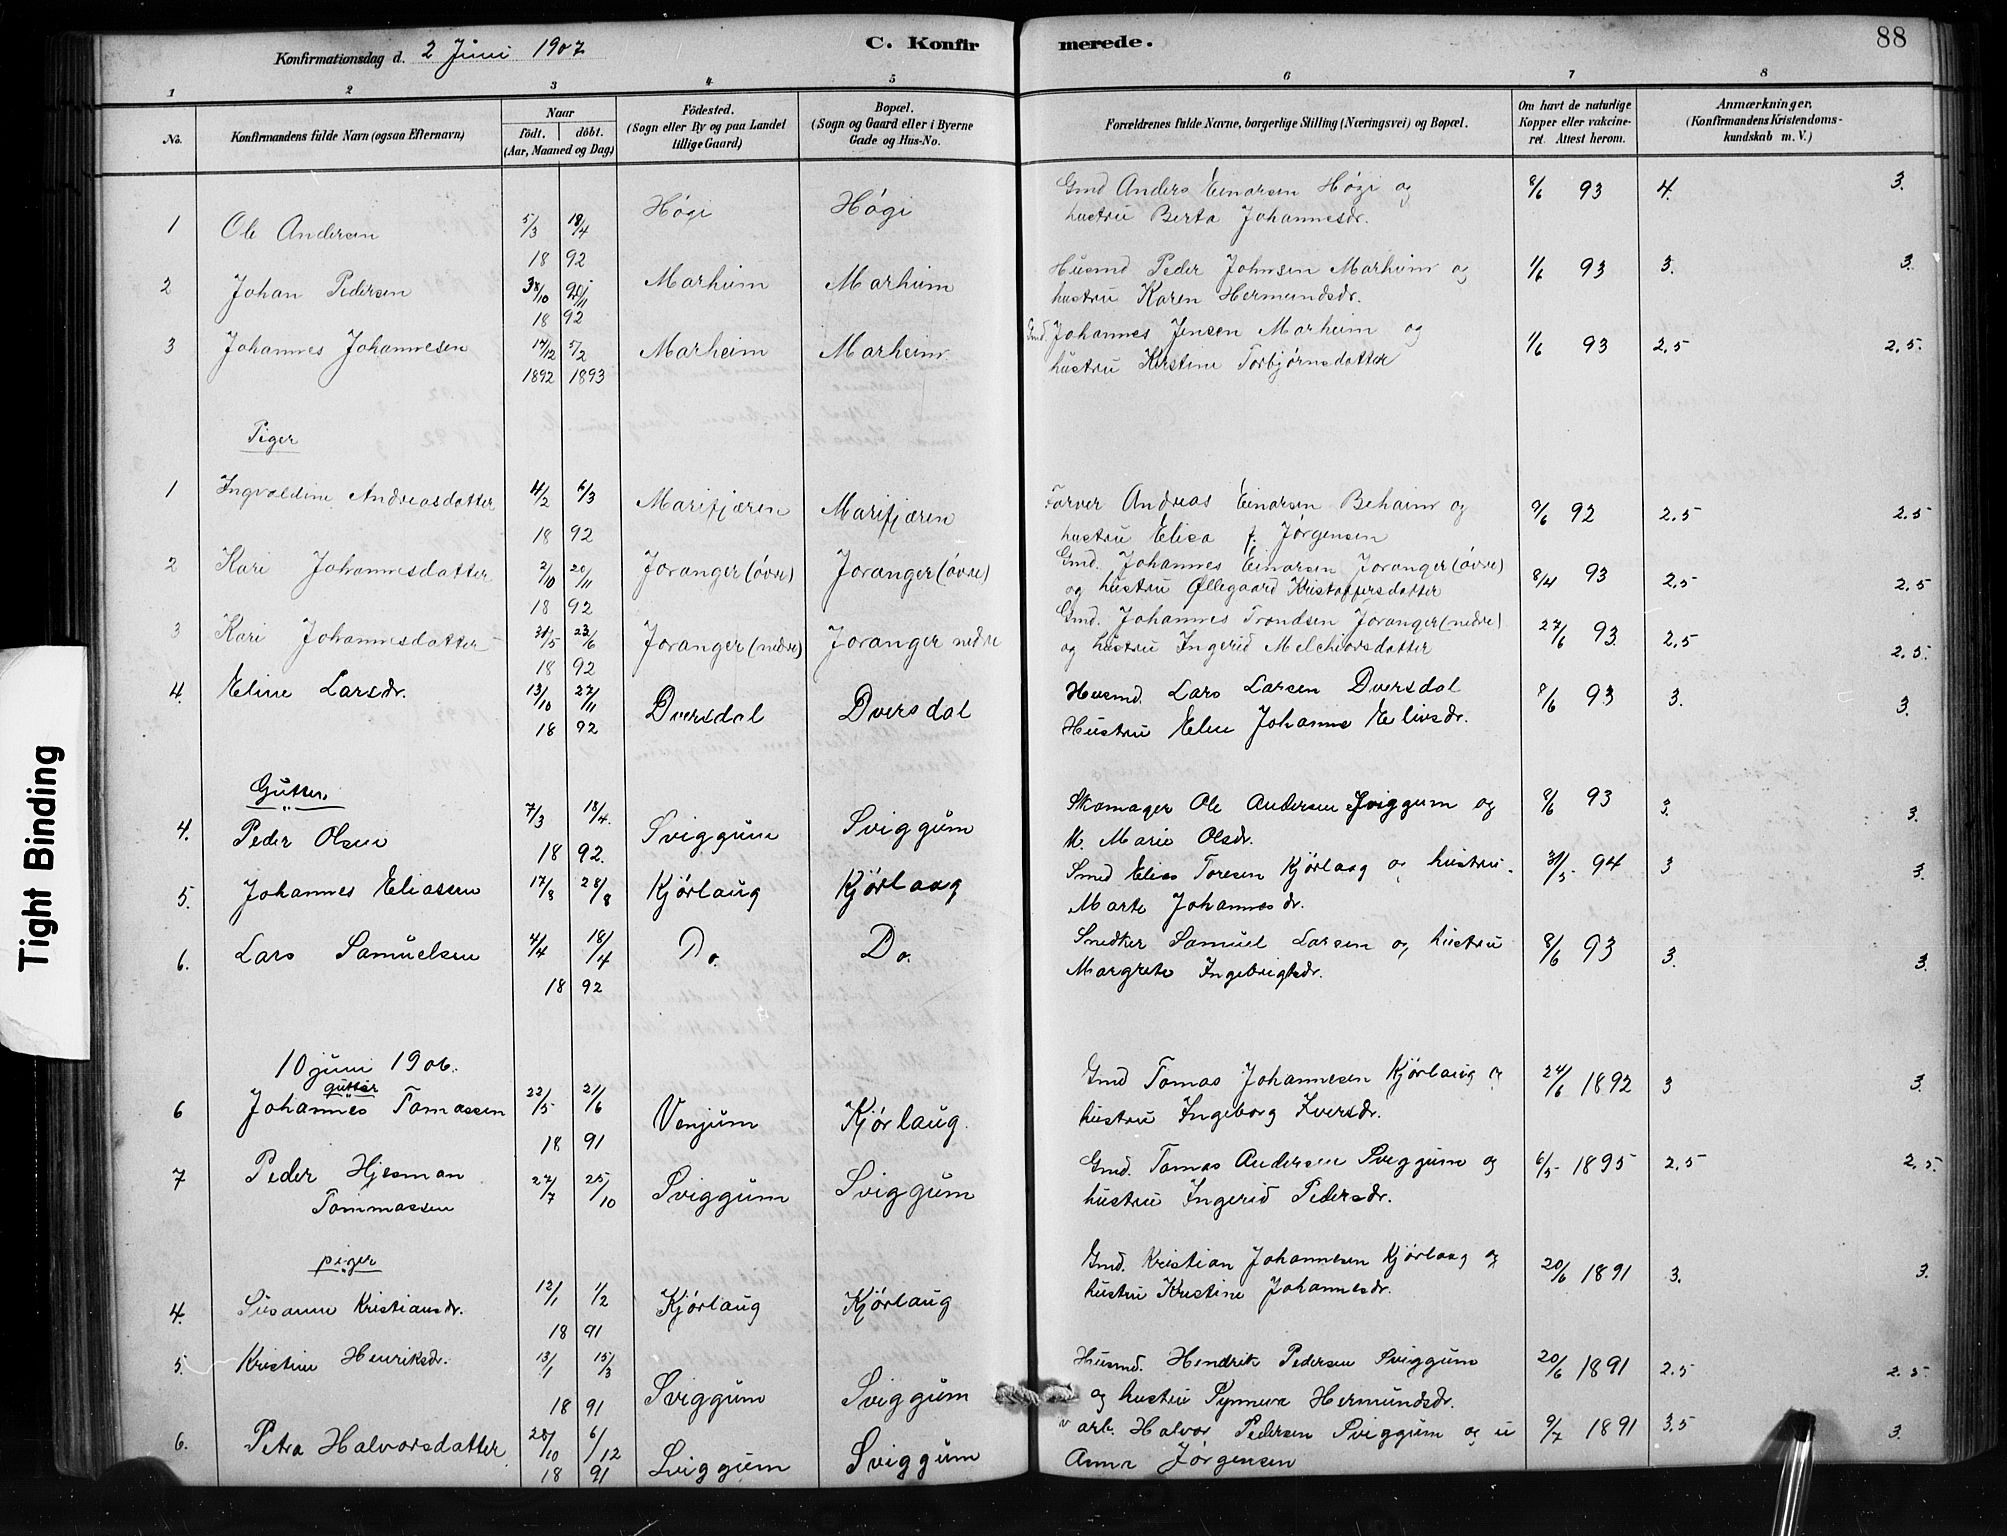 Konfirmationsdag d. 2 Juni 1907
C. Konfirmerede.
88
1 2 3 4 5 6 7 8
No. Konfirmandens fulde Navn (ogsaa Efternavn) Naar født. døbt. (Aar, Maaned og Dag) Födested. (Sogn eller By og paa Landet tillige Gaard) Bopæl. (Sogn og Gaard eller i Byerne Gade og Hus-No. Forældrenes fulde Navne, borgerlige Stilling (Næringsvei) og Bopæl. Om havt de naturlige Kopper eller vakcineret. Attest herom. Anmærkninger, (Konfirmandens Kristendomskundskab m. V.)
1 Ole Andersen 5/3 18/4 Høgi Høgi Gmd Anders Einarsen Høgi og 8/6 93 4. 3.
18 92 hustru Berta Johannesdr.
2 Johan Pedersen Marheim Marheim Husmd Peder Johnsen Marheim og 1/6 93 3. 3.
18 92 hustru Karen Hermundsdr.
3 Johannes Johannesen 17/12 5/2 Marheim Marheim Gmd. Johannes Jensen Marheim og 1/6 93 2,5 2,5.
1892 1893 hustru Kirstine Torbjørnsdatter
Piger
1 Ingvaldine Andreasdatter 4/2 6/3 Marifjæren Marifjæren Farver Andreas Einarsen Beheim og 9/6 92 2.5 2.5
18 92 hustru Elisa f. Jørgensen
2 Kari Johannesdatter 2/10 20/11 Joranger (øvre) Joranger (øvre) Gmd. Johannes Einarsen Joranger (øvre) 8/4 93 2.5 2.5
18 92 og hustru Øllegaard Kristoffersdatter
3 Kari Johannesdatter 31/5 23/6 Joranger (nedre) Joranger nedre Gmd. Johannes Trondsen Joranger (nedre) 27/6 93. 2,5 2.5.
18 92 og hustru Ingerid Melchiorsdatter
4. Eline Larsdr. 13/10 27/11 Dversdal Dversdal Husmd. Lars Larsen Dversdal 8/6 93 3. 3.
18 92 Hustru Elen Johanne Elivsdr.
Gutter.
4. Peder Olsen 7/3 18/4. Sviggum Sviggum Skomager Ole Andersen Sviggum og 8/6 93 3. 3.
18 92. k. Marie Olsdr.
5. Johannes Eliasen 17/8 28/8 Kjørlaug Kjørlaug Smed Elias Toresen Kjørlaug og hustru 31/5 94 3 3.
Marte Johannesdr.
6. Lars Samuelsen 4/4 18/4 Do. Do. Snedker Samuel Larsen og hustru 8/6 93 3. 3.
18 92 Margrete Ingebrigtsdr.
10 juni 1906.
gutter
6 Johannes Tomassen 22/5 21/6 Venjum Kjørlaug. Gmd Tomas Johannesen Kjørlaug og 24/6 1892 3 3.
18 91 hustru Ingeborg Iversdr.
7 Peder Hjesman 27/7 25/10 Sviggum Sviggum Gmd. Tomas Andersen Sviggum og 6/5 1895 2,5 2,5.
Tommassen hustru Ingerid Pedersdr.
piger
4. Susanne Kristiansdr. 12/1 1/2 Kjørlaug Kjørlaug Gmd. Kristian Johannesen Kjørlaug og 20/6 1891 3. 3.
18 91 hustru Kristine Johannesdr.
5. Kristine Henriksdr. 13/1 15/3 Sviggum Sviggum Husmd. Hendrik Pedersen Sviggum 20/6 1891 2.5 2.5
18 91 og hustru Synneva Hermundsdr.
6. Petra Halvorsdatter 28/10 6/12 Sviggum Sviggum arb. Halvor Pedersen Sviggum og 9/7 1891 3,5 3.
18 91 Anna Jørgensen
Tight Binding